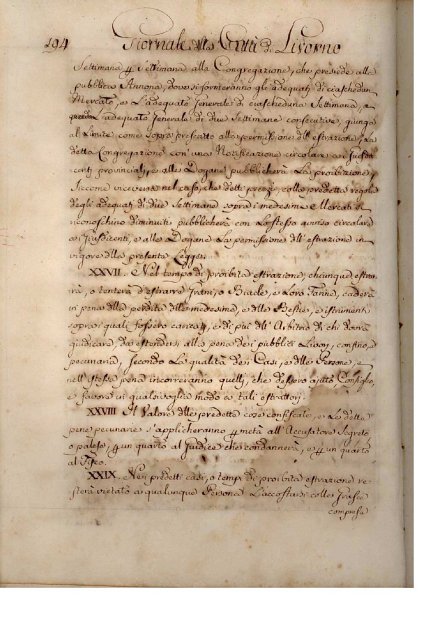 194 Giornale di Città di Livorno
Settimana p Settimana alla Congregazione, che presiede alla
pubblica Annona, dove si formeranno gli adeguati di ciaschedun
Mercato, e L'adeguato generale di ciascheduna Settimana, e
adeguato generale di due Settimane consecutive, giunga
al Limite come sopra prescritto alla permissione dell'estrazione, La
detta Congregazione con una Notificazione circolare ai Jusdi-
centi provinciali, e alle Dogane pubblicherà La proibizione, e
Siccome viceversa nel caso, che detti prezzi colla predetta regola
degli adeguati di due Settimane sopra i medesimi Mercati si
riconoschino diminuiti pubblicherà con Lo stesso avviso circolare
ai Jusdicenti, e alle Dogane La permissione dell'estrazione in
vigore della presente Legge.
XXVII. Nel tempo di proibita estrazione, chiunque estrar-
rà, o tenterà d'estrarre Grani, o Biade, e Loro Farine, caderà
in pena della perdita delle medesime, e delle Bestie, e istrumenti
sopra i quali fossero caricati, e di più all'Arbitrio di chi dovrà
giudicare, da estendersi alla pena dei pubblici Lavori, confino, e
pecuniaria, secondo La qualità dei Casi, e delle Persone, e
nell'istessa pena incorreranno quelli, che dessero ajuto Consiglio,
e favore in qualsivoglia modo a tali estrattori.
XXVIII. Il Valore delle predette cose confiscate, e La detta
pena pecuniaria s'applicheranno p metà all'Accusatore Segreto
o palese, p un quarto al Giudice che condannerà, e p un quarto
al Fisco.
XXIX. Nei predetti casi, o tempi di proibita estrazione re-
sterà vietato a qualunque Persona L'accostarsi colle Grascie
comprese